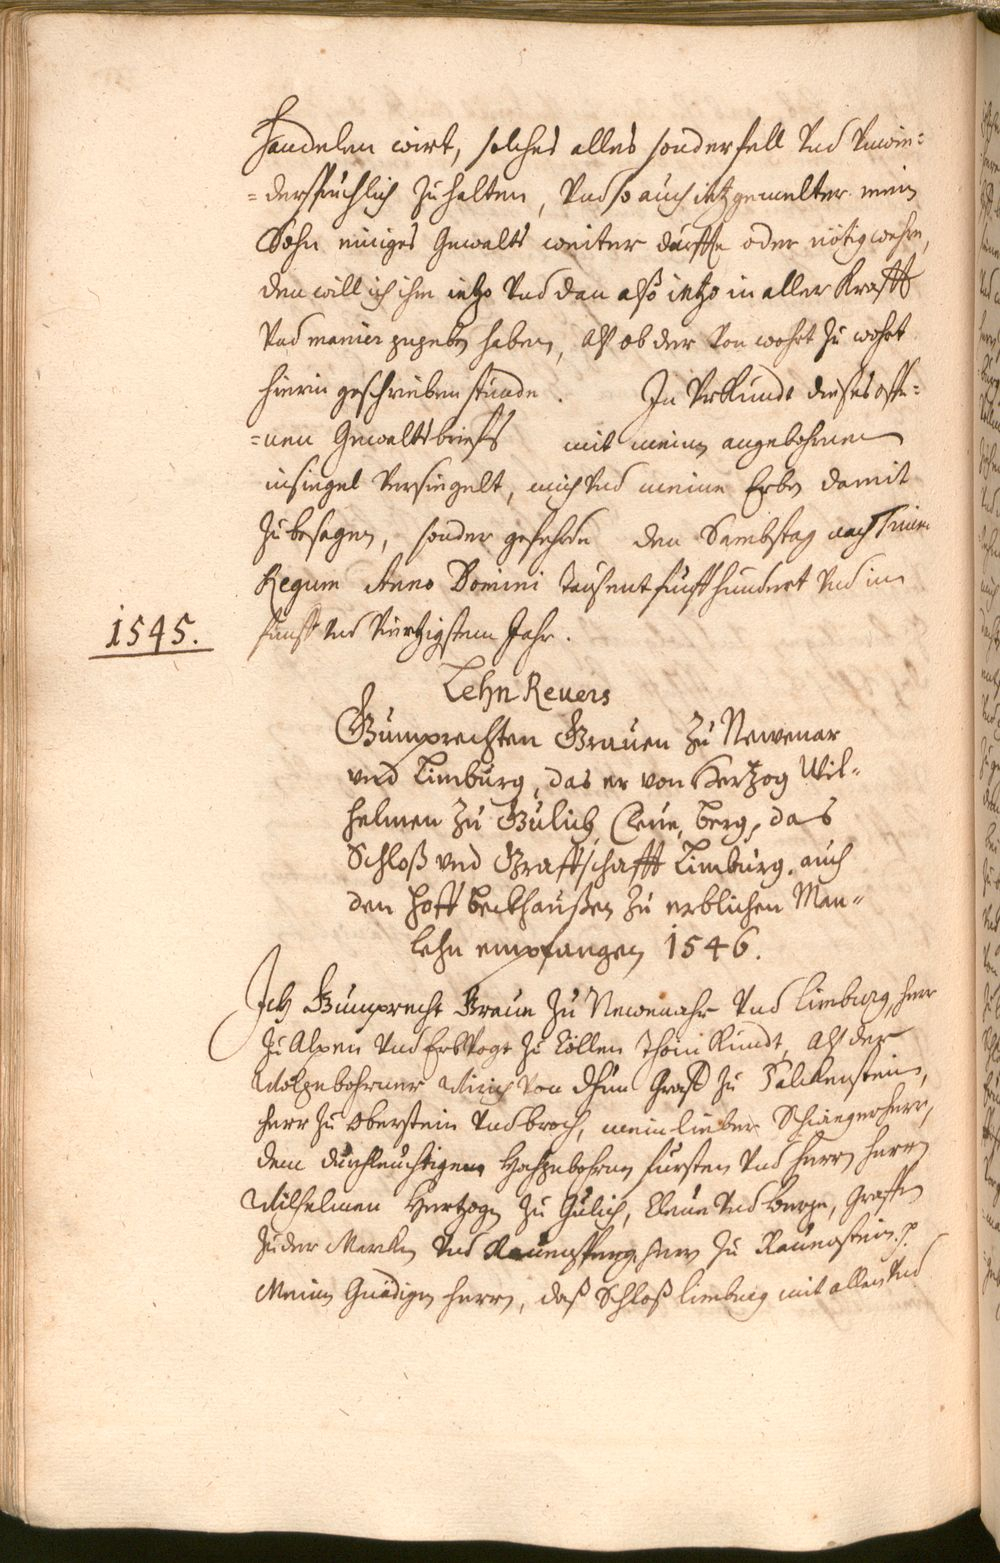 handelen wirt, solches alles sonder fell Vnd Vnwie:
=derspruchlich zu halten, Vnd so auch ietzgemelter mein
Sohn einiges Gewalts weiter durffte oder nötig wehre,
den will ich ihm ietzo Vnd dan alß ietzo in aller Krafft
Vnd manier gegeben haben, Alß ob der Von wohrt zu wohrt
hierin geschrieben stünde. In Vrkundt dieses offe:
=nen Gewaltsbrieffs mit meinem angebohrnen
insiegel Versiegelt, mich Vnd meine Erben damit
zu besagen, sonder gefehrde den Sambstag nach Trium
Regum Anno Domini Tausent fünffhundert Vnd im
fünff Vnd Viertzigstem Jahr.
1545.
Lehn Reuers
Gumprechten Grauen zu Newenar
vnd Limburg, das er von Hertzog Wil-
helmen zu Gulich, Cleue, Berg, das
Schloß vnd Graffschafft Limburg, auch
den Hoff Beckhaußen zu erblichen Man-
lehn empfangen 1546.
Ich Gumprecht Graue zu Newenahr Vnd Limburg, herr
zu Alpen Vnd Erbvogt zu Cöllen Thuin Kundt, Alß der
Wolgebohrner Wirich Von Dhun Graff zu Falckenstein,
herr zu Oberstein Vnd broch, mein lieber Schwegerherr,
dem durchleuchtigem Hochgebohrnen fürsten Vnd herrn herrn
Wilhelmen Hertzogen zu Gülich, Cleue Vnd Berge, Graffen
zu der Marken Vnd Rauenspergh herr zu Rauenstein p.
Meinen Gnädigen herrn, daß Schloß Limburg mit allen Vnd